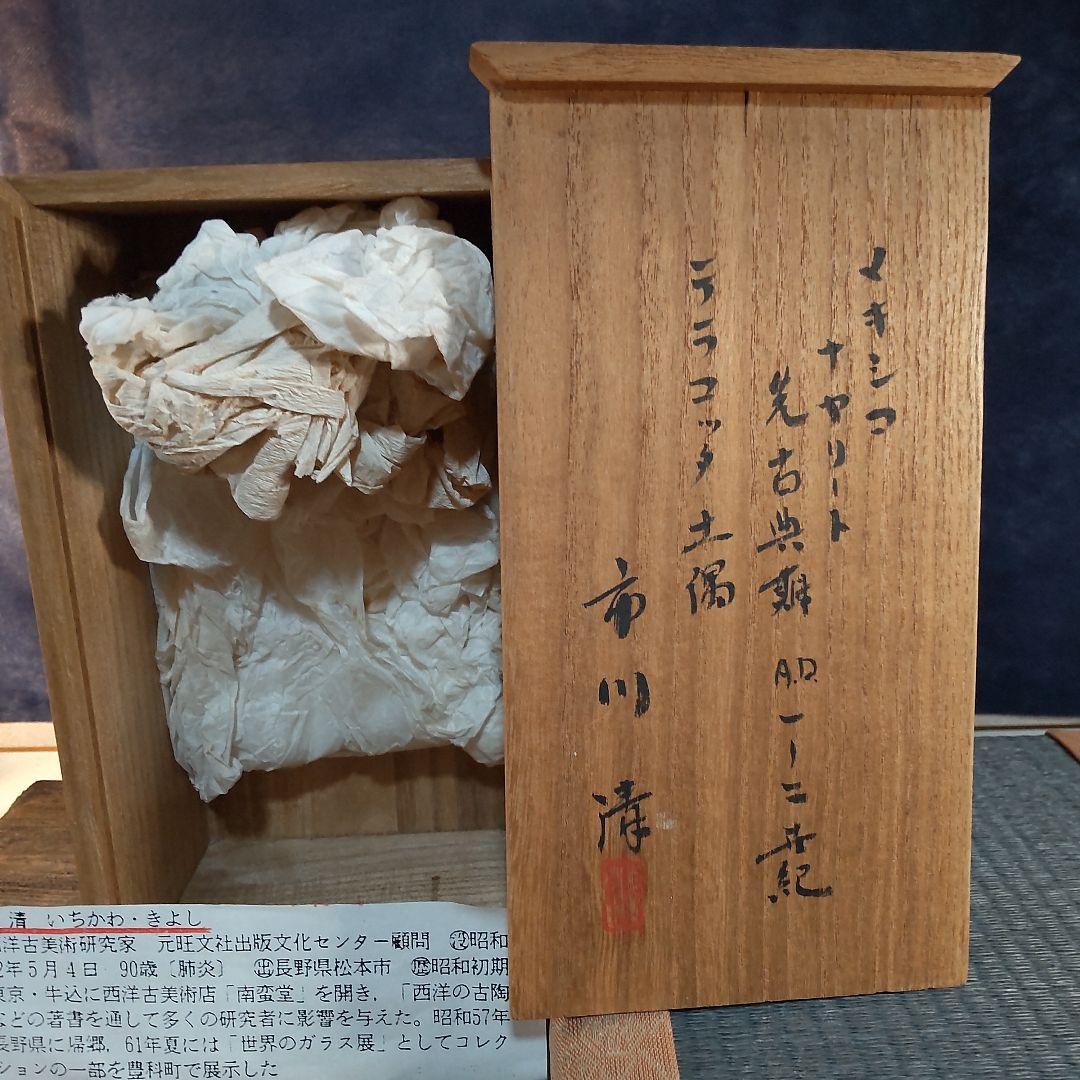 メキシコ
ナヤリート
先古典期 A.D. 一ー二世紀
テラコッタ土偶
市川清
清 いちかわ・きよし
洋古美術研究家 元旺文社出版文化センター顧問 ㊣昭和
2年5月4日 90歳〔肺炎〕 出長野県松本市 歴昭和初期
東京・牛込に西洋古美術店「南蛮堂」を開き,「西洋の古陶
などの著書を通して多くの研究者に影響を与えた。昭和57年
長野県に帰郷,61年夏には「世界のガラス展」としてコレク
ションの一部を豊科町で展示した